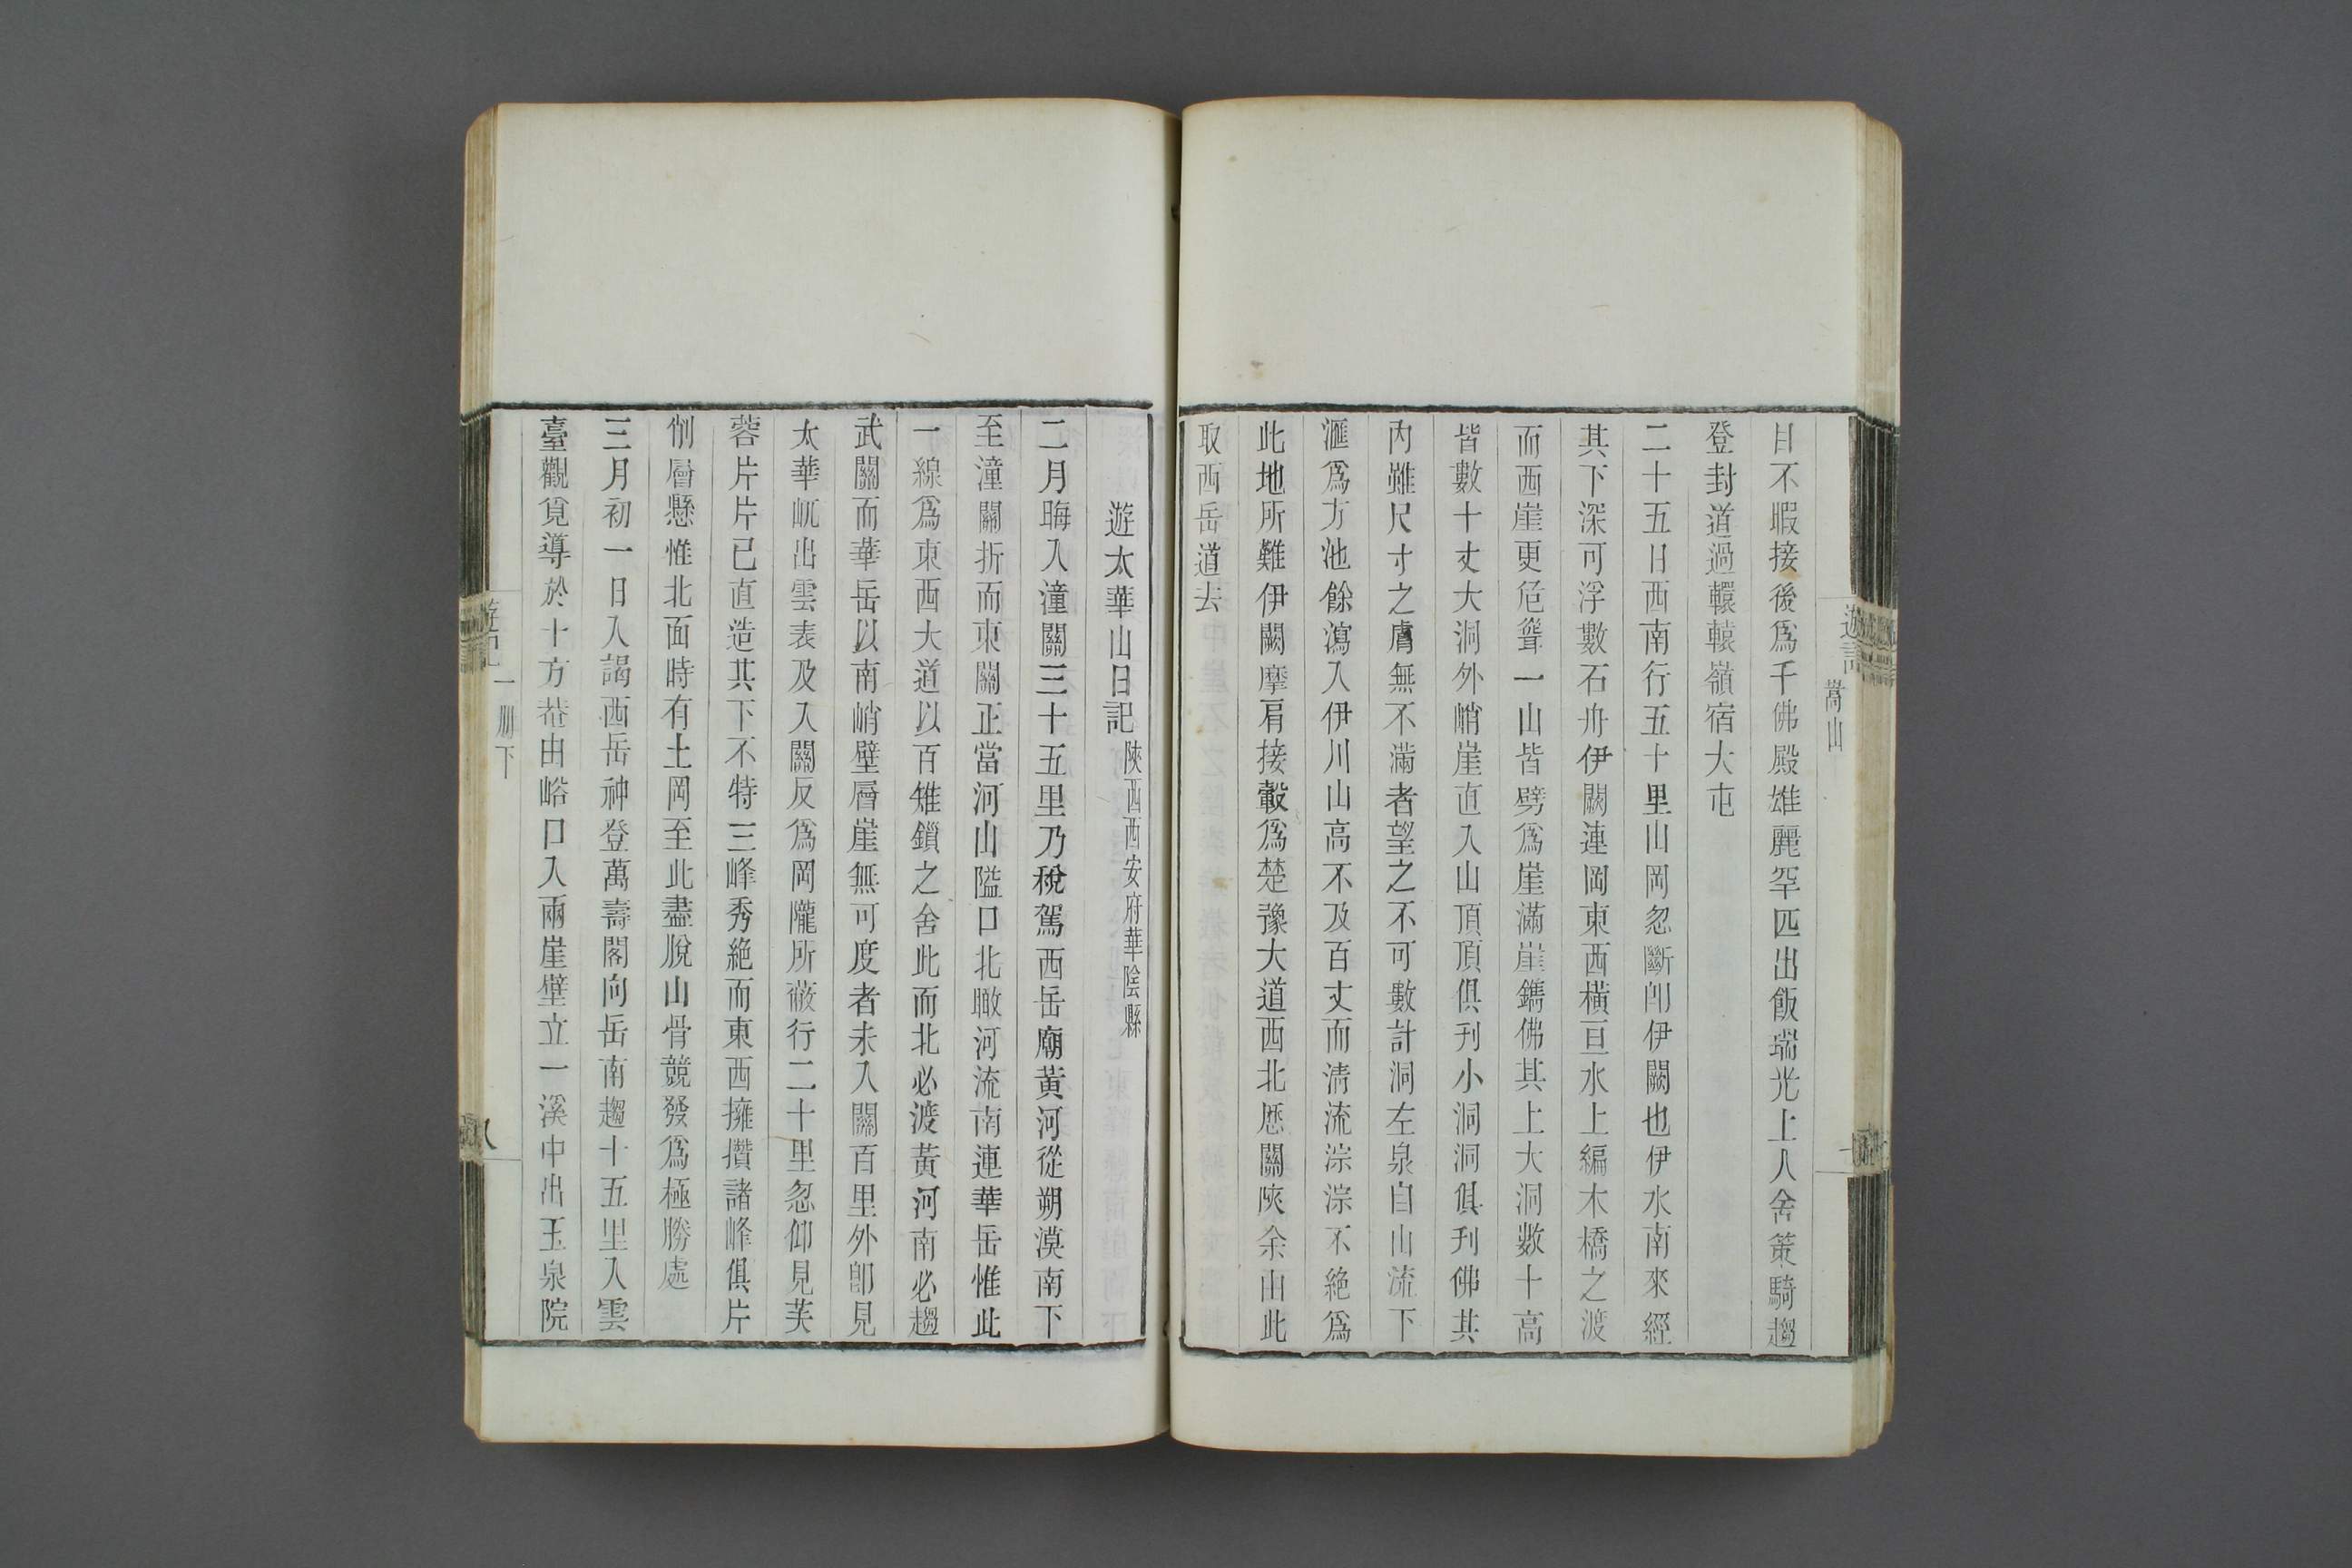 遊記
嵩山
目不暇接後爲千佛殿雄麗罕匹出飯瑞光上人舍策騎趨
登封道過轘轅嶺宿大屯
二十五日西南行五十里山岡忽斷卽伊闕也伊水南來經
其下深可浮數石舟伊闕連岡東西橫亘水上編木橋之渡
而西崖更危聳一山皆劈爲崖滿崖鐫佛其上大洞數十高
皆數十丈大洞外峭崖直入山頂頂俱刊小洞洞俱刊佛其
內雖尺寸之膚無不滿者望之不可數計洞左泉自山流下
滙爲方池餘瀉入伊川山高不及百丈而清流淙淙不絕爲
此地所難伊闕摩肩接轂爲楚豫大道西北歷關陝余由此
取西岳道去
遊太華山日記 陝西西安府華陰縣
二月晦入潼關三十五里乃稅駕西岳廟黃河從朔漠南下
至潼關折而東關正當河山隘口北瞰河流南連華岳惟此
一線爲東西大道以百雉鎖之舍此而北必渡黃河南必趨
武關而華岳以南峭壁層崖無可度者未入關百里外卽見
太華屼出雲表及入關反爲岡隴所蔽行二十里忽仰見芙
蓉片片已直造其下不特三峰秀絕而東西擁攢諸峰俱片
削層懸惟北面時有土岡至此盡脫山骨競發爲極勝處
三月初一日入謁西岳神登萬壽閣向岳南趨十五里入雲
臺觀覓導於十方菴由峪口入兩崖壁立一溪中出玉泉院
遊記
一册下
八